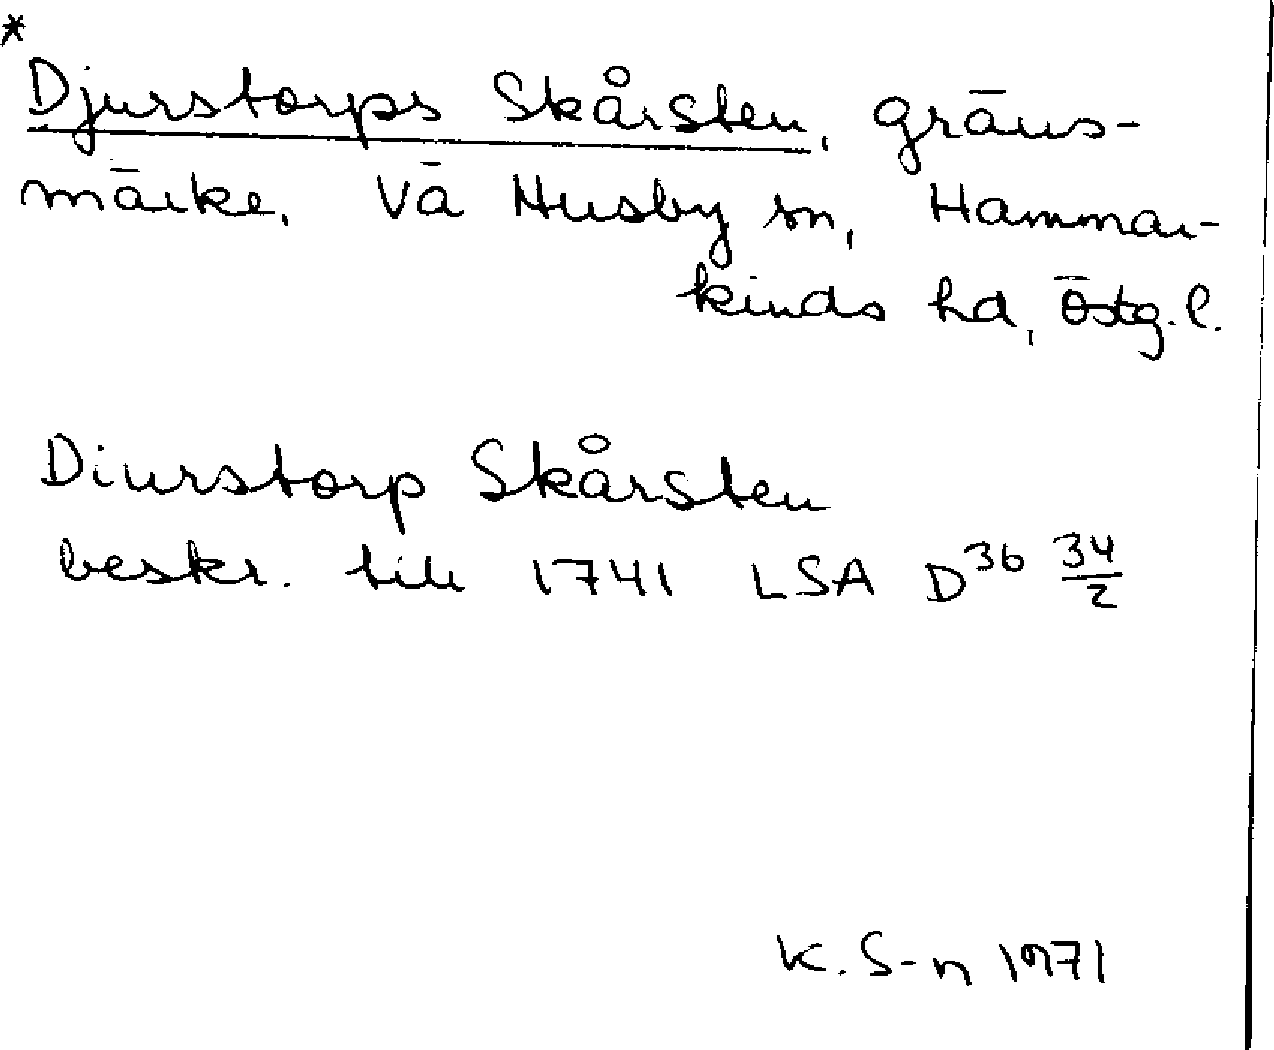 *
Djurstorps Skårsten, gräns-
märke, Vä Husby sn, Hammar-
kinds hd, Östg.l.
Diurstorp Skårsten
beskr. till 1741 LSA D36 34/2
K. S-n 1971